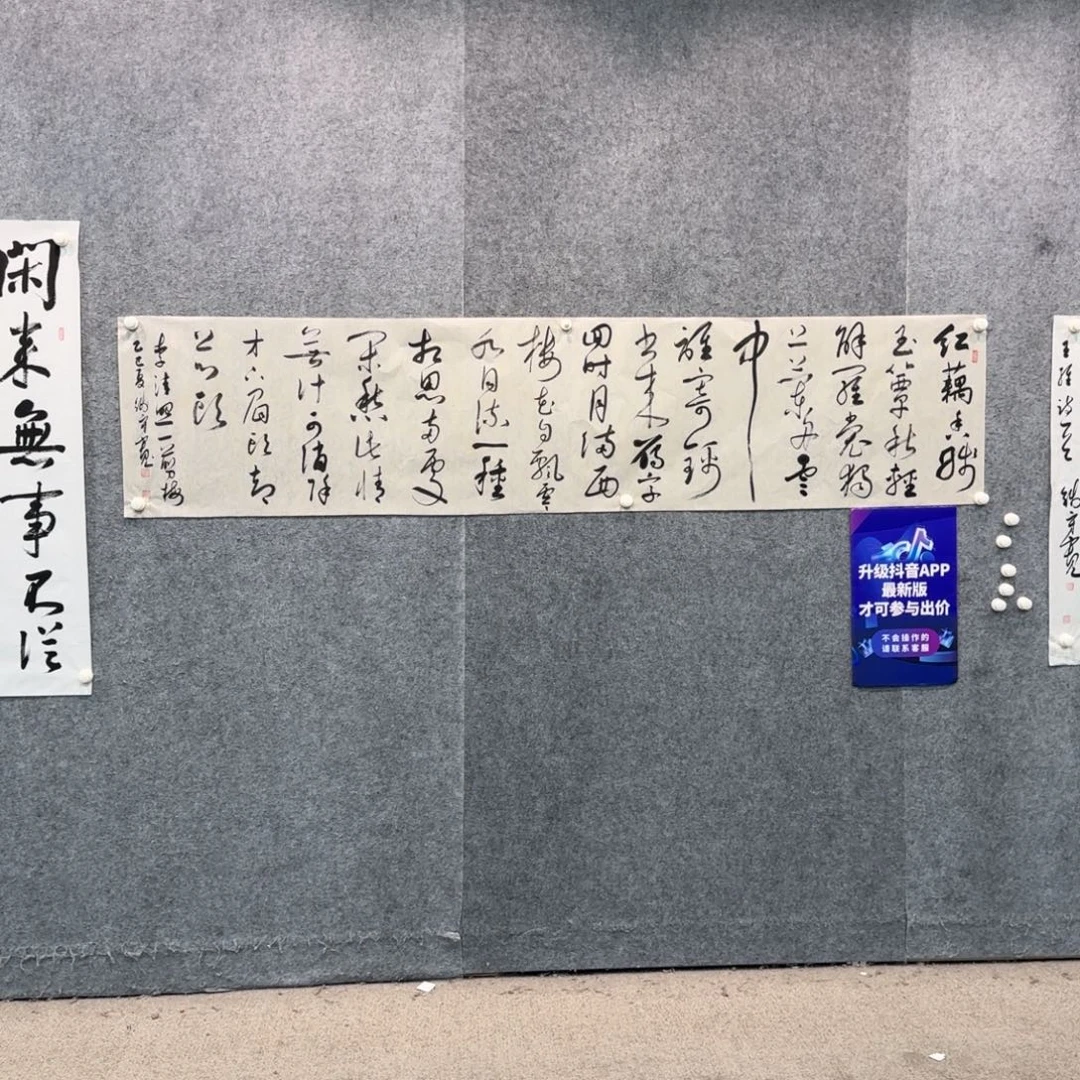 閑来無事不從
红藕香残
玉簟秋轻
解羅裳獨
上兰舟雲
中
誰寄錦
书来雁字
回时月满西
楼花自飘零
水自流一種
相思两處
闲愁此情
無计可消除
才下眉头却
上心头
李清照一剪梅
乙巳夏
升级抖音APP
最新版
才可参与出价
不会操作的
请联系客服
王维诗一首